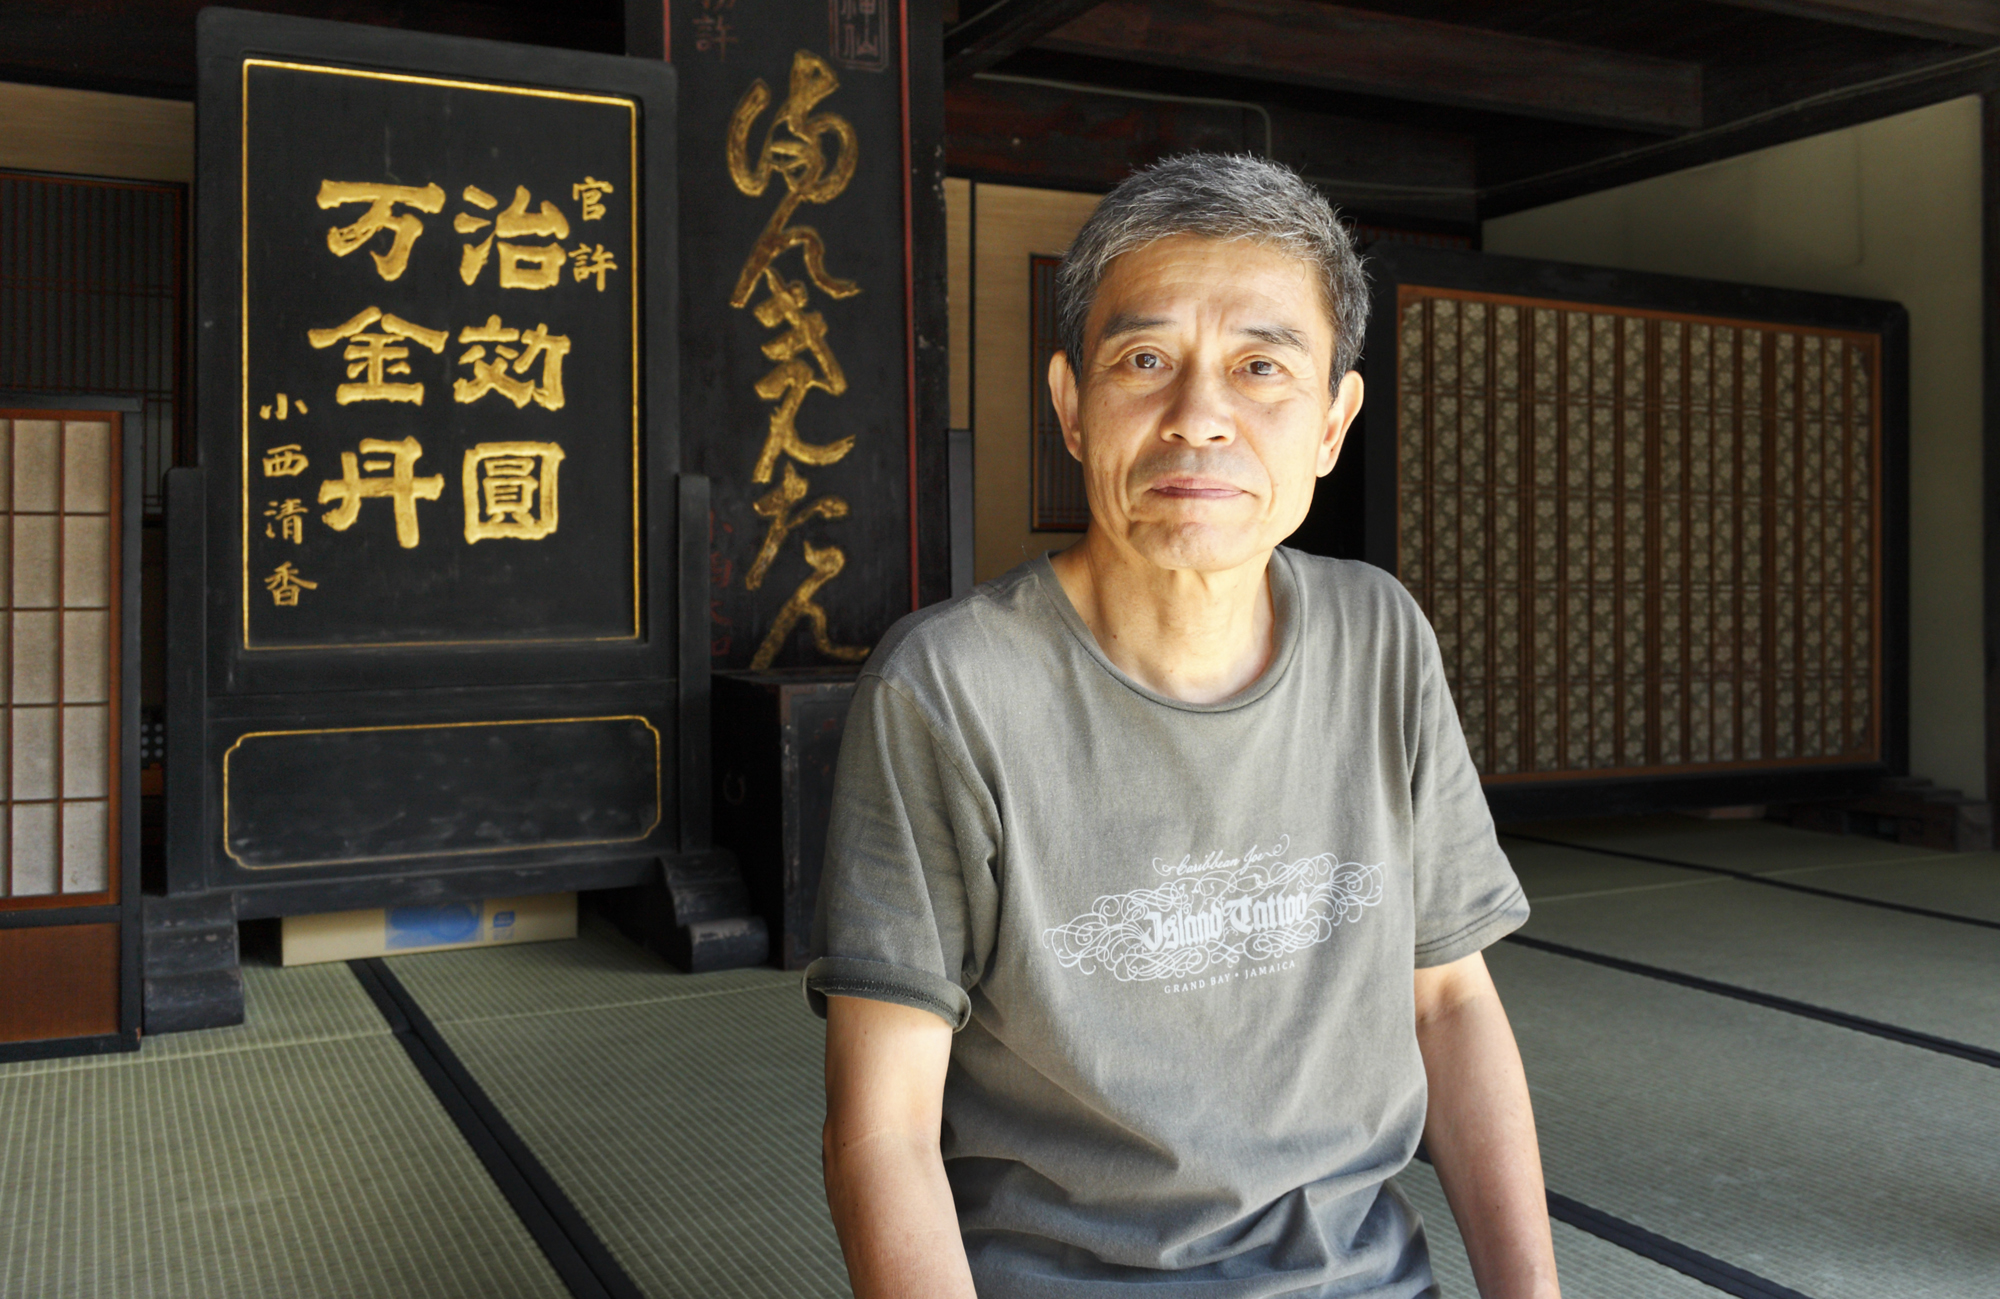 官許
治効圓
万金丹
小西清香
まんきんたん
Caribbean Joe
Island Tattoo
GRAND BAY • JAMAICA